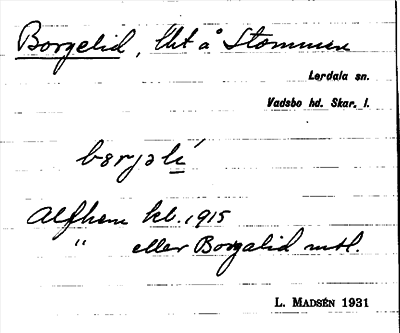 Borgelid, lht å Stommen
Lerdala sn.
Vadsbo hd. Skar. l.
bɵrjəlí
Alfhem kb. 1915
" eller Borgalid mtl.
L. MADSÉN 1931